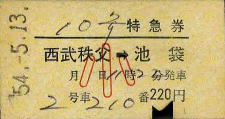 54.-5.13.
特急券
西武秩父 → 池袋
月 日 11時2 分発車
2号車 210番 220円
小